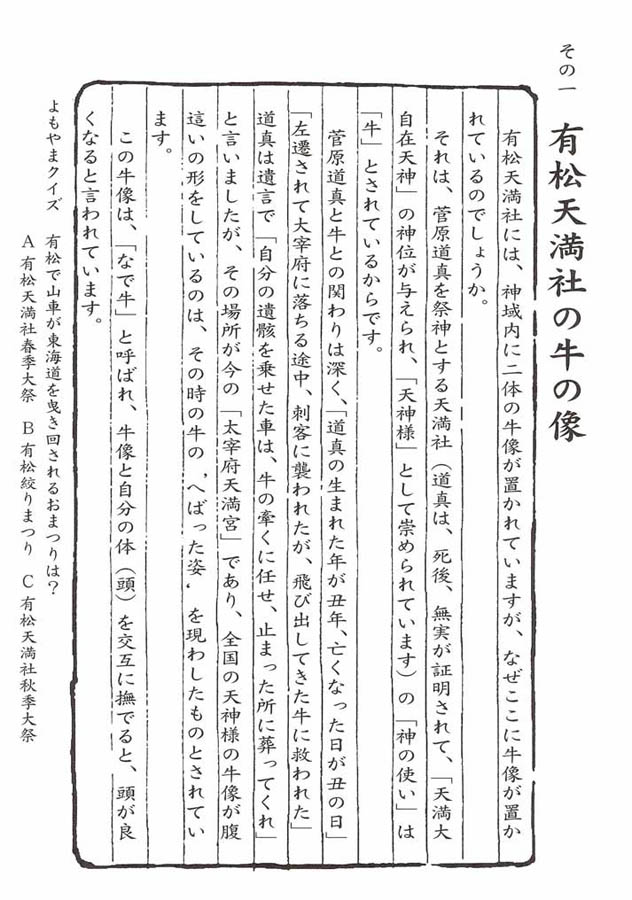 その一　有松天満社の牛の像
有松天満社には、神域内に二体の牛像が置かれていますが、なぜここに牛像が置か
れているのでしょうか。
それは、菅原道真を祭神とする天満社（道真は、死後、無実が証明されて、「天満大
自在天神」の神位が与えられ、「天神様」として崇められています）の「神の使い」は
「牛」とされているからです。
菅原道真と牛との関わりは深く、「道真の生まれた年が丑年、亡くなった日が丑の日」
「左遷されて大宰府に落ちる途中、刺客に襲われたが、飛び出してきた牛に救われた」
道真は遺言で「自分の遺骸を乗せた車は、牛の牽くに任せ、止まった所に葬ってくれ」
と言いましたが、その場所が今の「太宰府天満宮」であり、全国の天神様の牛像が腹
這いの形をしているのは、その時の牛の〝へばった姿〟を現わしたものとされてい
ます。
この牛像は、「なで牛」と呼ばれ、牛像と自分の体（頭）を交互に撫でると、頭が良
くなると言われています。
よもやまクイズ　有松で山車が東海道を曳き回されるおまつりは？
A 有松天満社春季大祭　B 有松絞りまつり　C 有松天満社秋季大祭